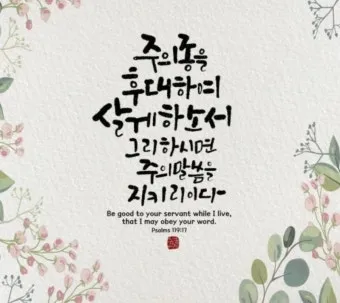 주의 종을
후대하여
살게하소서
그리하시면
주의 말씀을
지키리이다
Be good to your servant while I live,
that I may obey your word.
Psalms 119:17